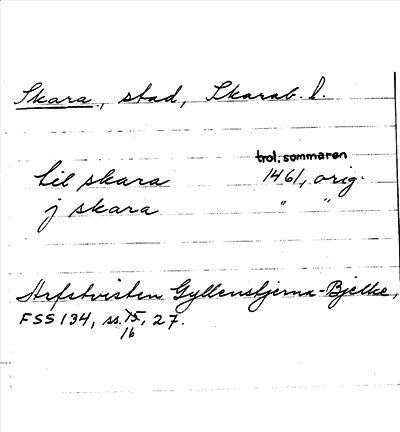 Skara, stad, Skarab. l.
trol. sommaren
til skara 1461, orig.
j skara " "
Arfstvisten Gyllenstjerna-Bjelke,
FSS 134, ss. 15, 27.
16